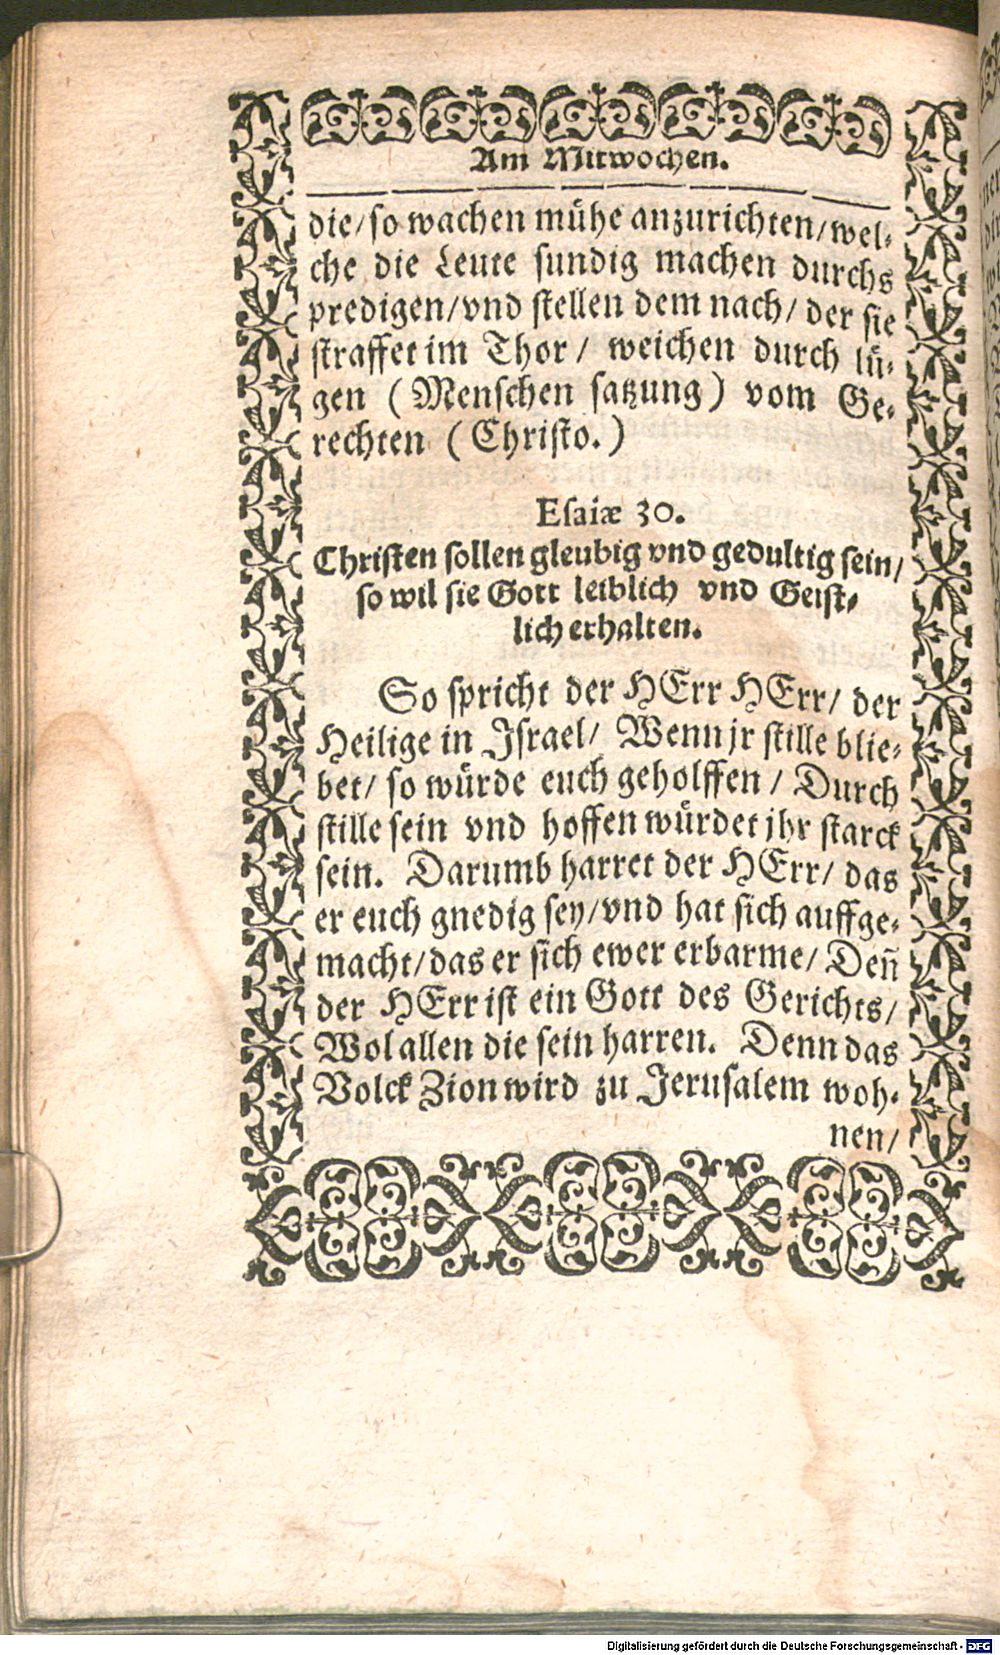 Am Mitwochen.
die/so wachen mühe anzurichten/wel-
che die Leute sundig machen durchs
predigen/vnd stellen dem nach/ der sie
straffet im Thor/ weichen durch lü-
gen (Menschen satzung) vom Ge-
rechten (Christo.)
Esaiæ 30.
Christen sollen gleubig vnd gedultig sein/
so wil sie Gott leiblich vnd Geist-
lich erhalten.
So spricht der HErr HErr/ der
Heilige in Israel/ Wenn jr stille blie-
bet/ so würde euch geholffen/ Durch
stille sein vnd hoffen würdet jhr starck
sein. Darumb harret der HErr/ das
er euch gnedig sey/vnd hat sich auffge-
macht/das er sich ewer erbarme/ Deñ
der HErr ist ein Gott des Gerichts/
Wol allen die sein harren. Denn das
Volck Zion wird zu Jerusalem woh-
nen/
Digitalisierung gefördert durch die Deutsche Forschungsgemeinschaft - DFG